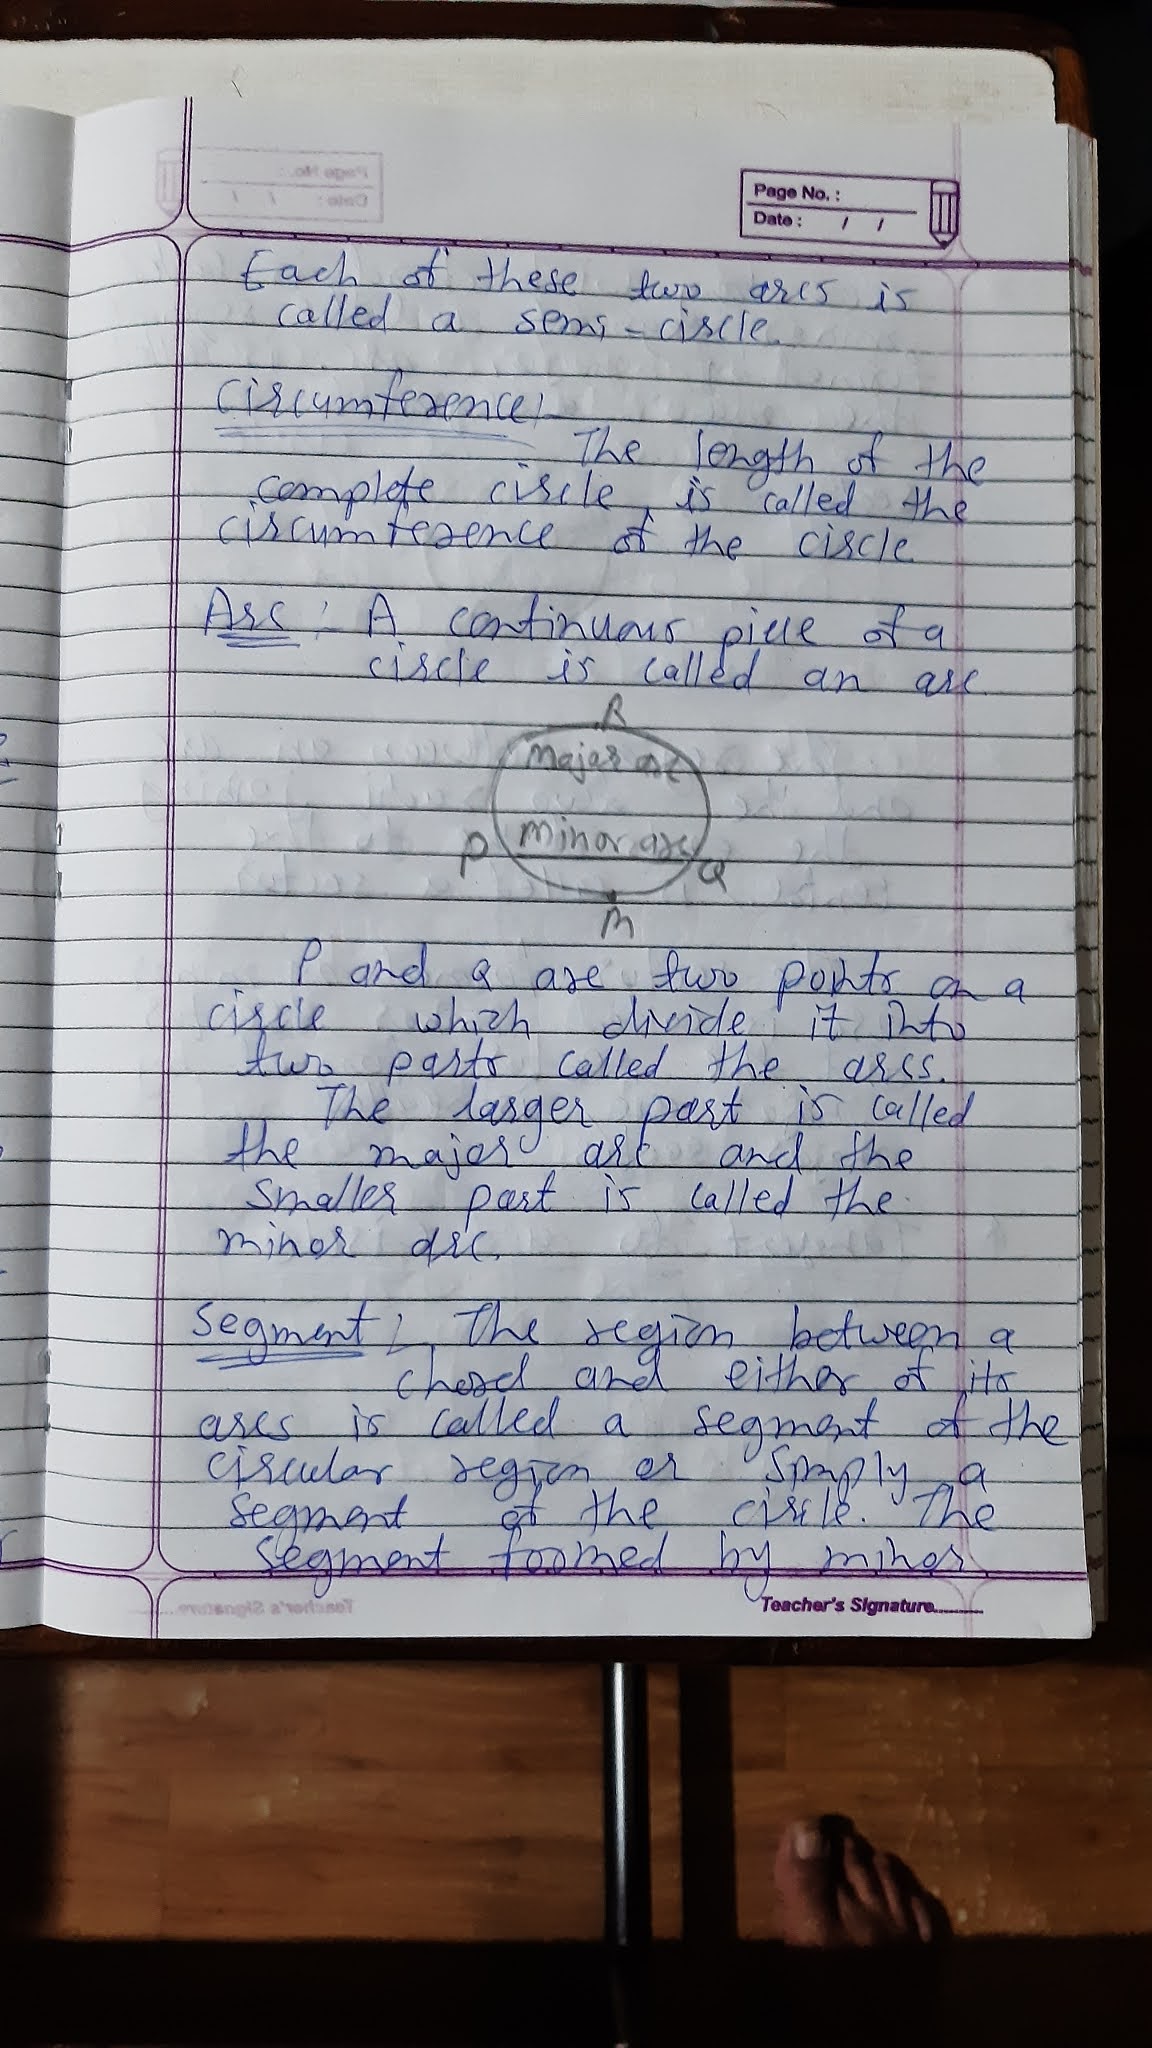 Page No. :
Date : / /
Each of these two arcs is
called a semi-circle.
Circumference:-
The length of the
complete circle, is called the
circumference of the circle
Arc : A continuous piece of a
circle is called an arc
R
Major arc
minor arc
P
Q
M
P and Q are two points on a
circle which divide it into
two parts called the arcs.
The larger part is called
the major arc and the
smaller part is called the
minor arc.
Segment : The region between a
chord and either of its
arcs is called a segment of the
circular region or simply a
segment of the circle. The
segment formed by minor
Teacher's Signature..........